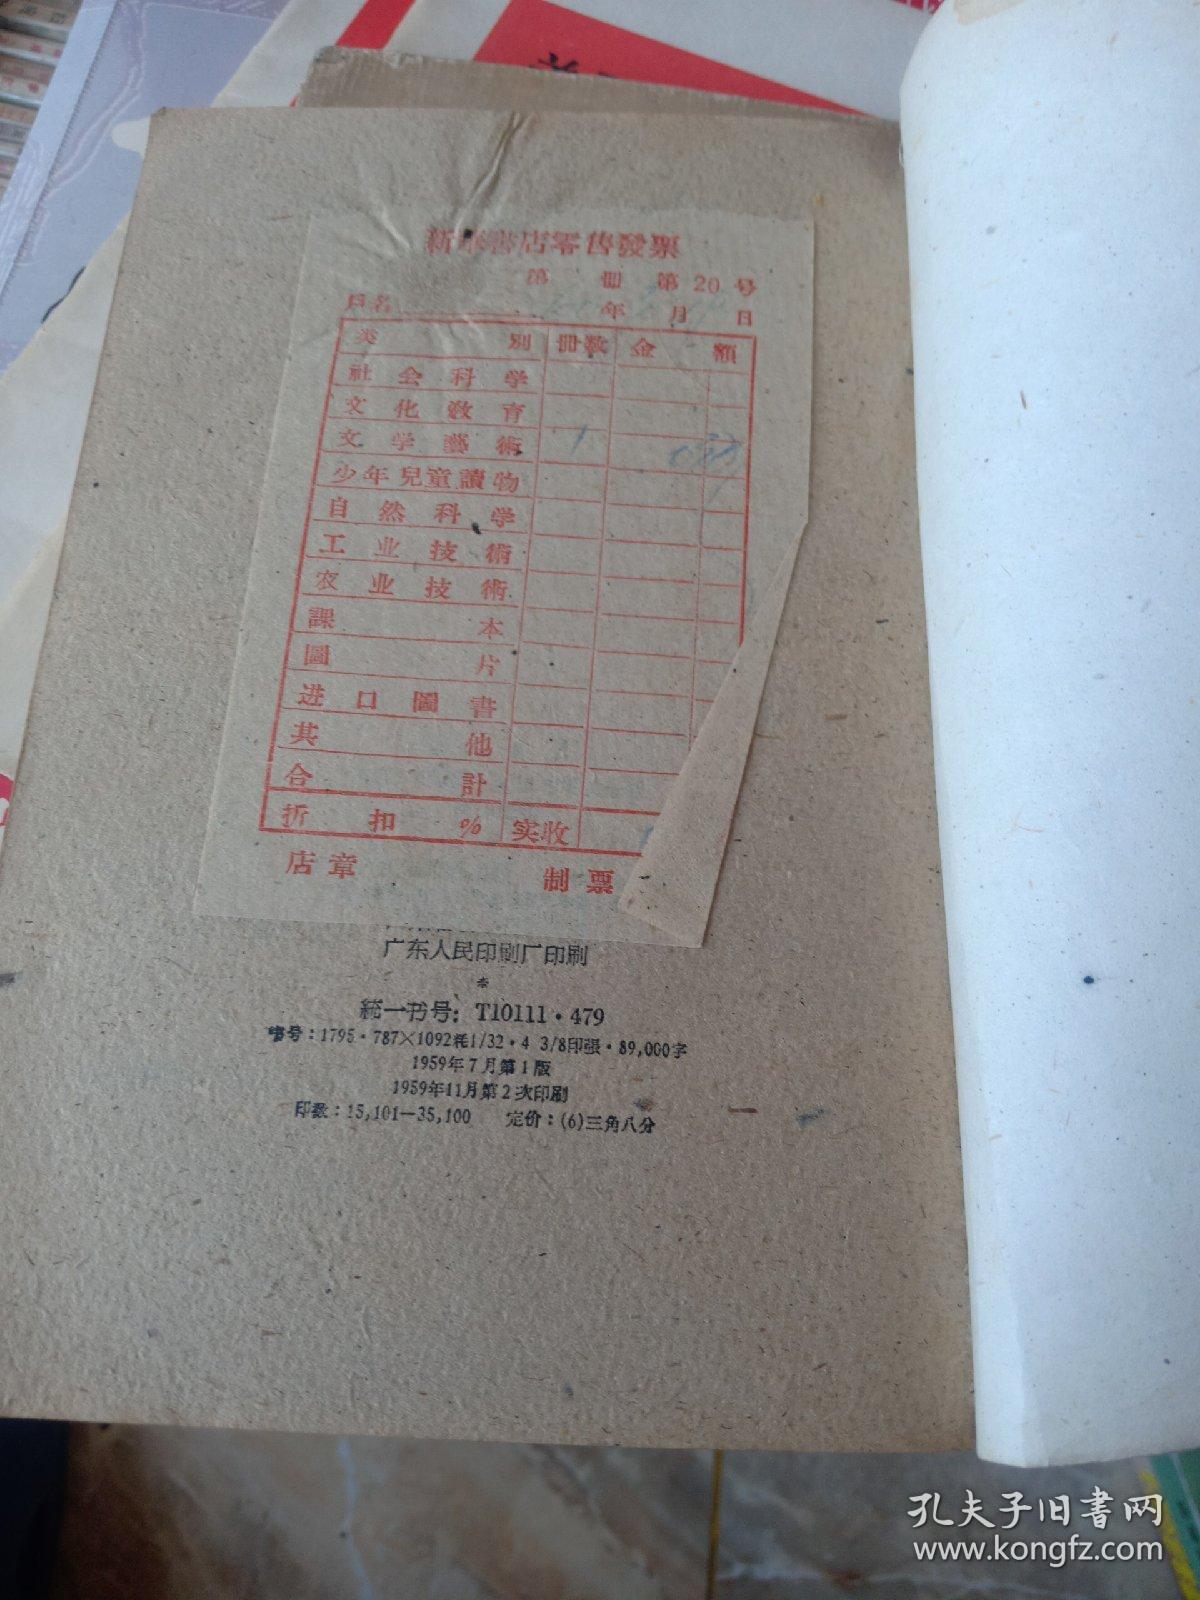 新華書店零售發票
第 冊 第 20 号
戶名 年 月 日
类 別 冊数 金 額
社会科学
文化教育
文学藝術 1
少年兒童讀物
自然科学
工业技術
农业技術
課本
圖片
进口圖書
其他
合計
折扣 % 实收
店章 制票
广东人民印刷厂印刷
*
統一书号: T10111·479
書号: 1795·787×1092耗1/32·4 3/8印張·89,000字
1959年7月第1版
1959年11月第2次印刷
印数: 15,101—35,100 定价: (6)三角八分
孔夫子旧书网
www.kongfz.com